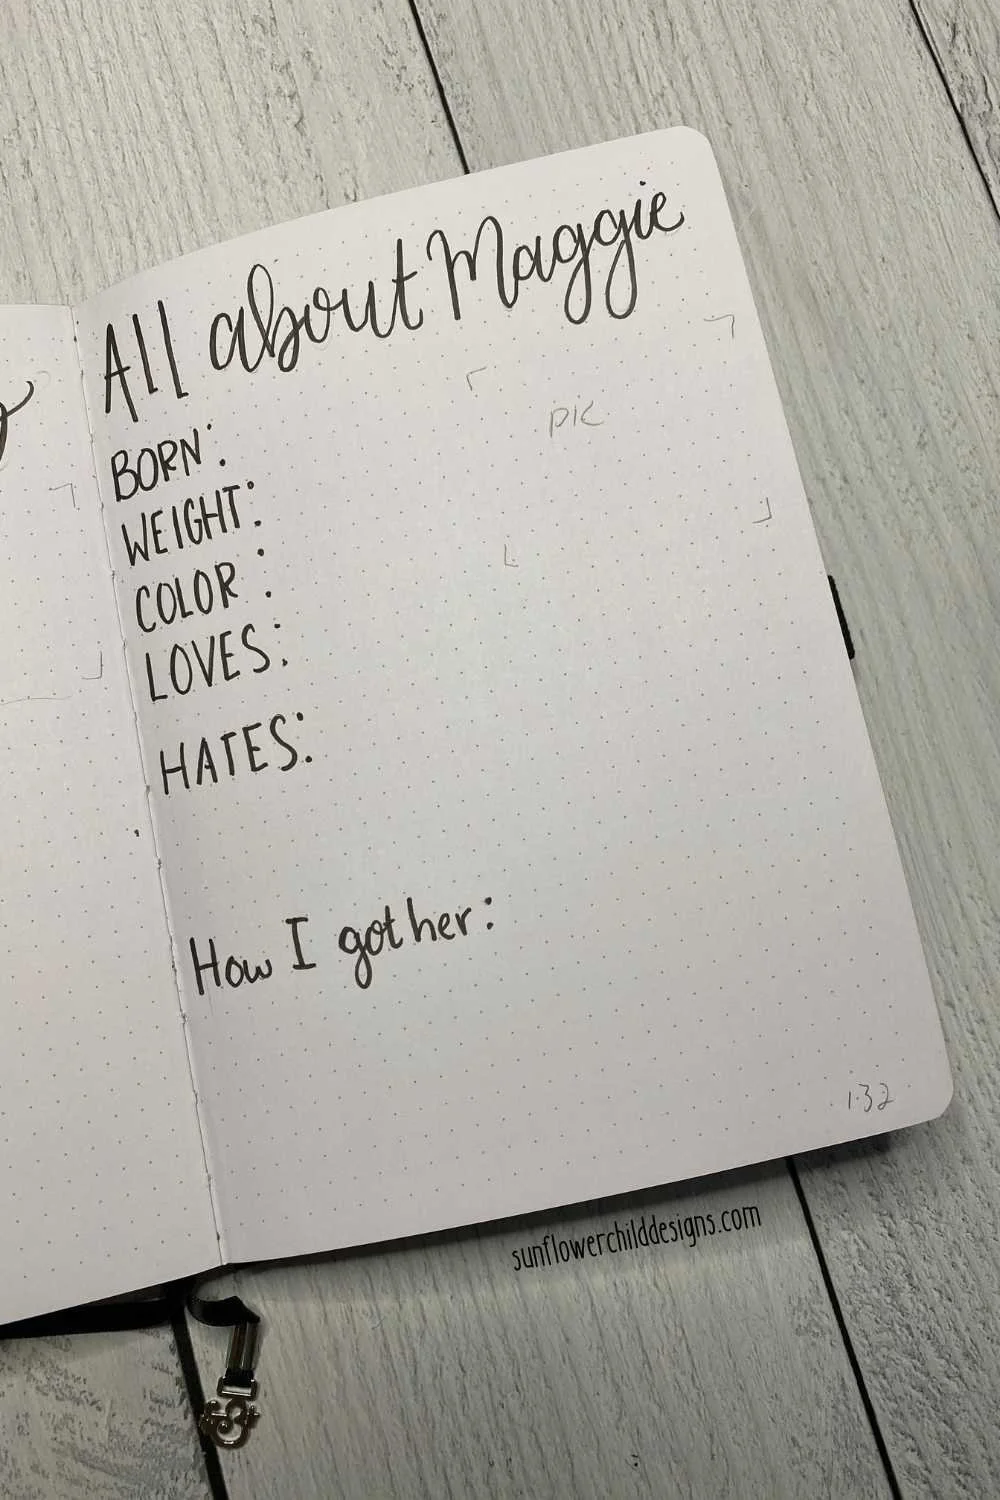 All about Maggie
PIC
BORN:
WEIGHT:
COLOR:
LOVES:
HATES:
How I got her:
132
sunflowerchilddesigns.com